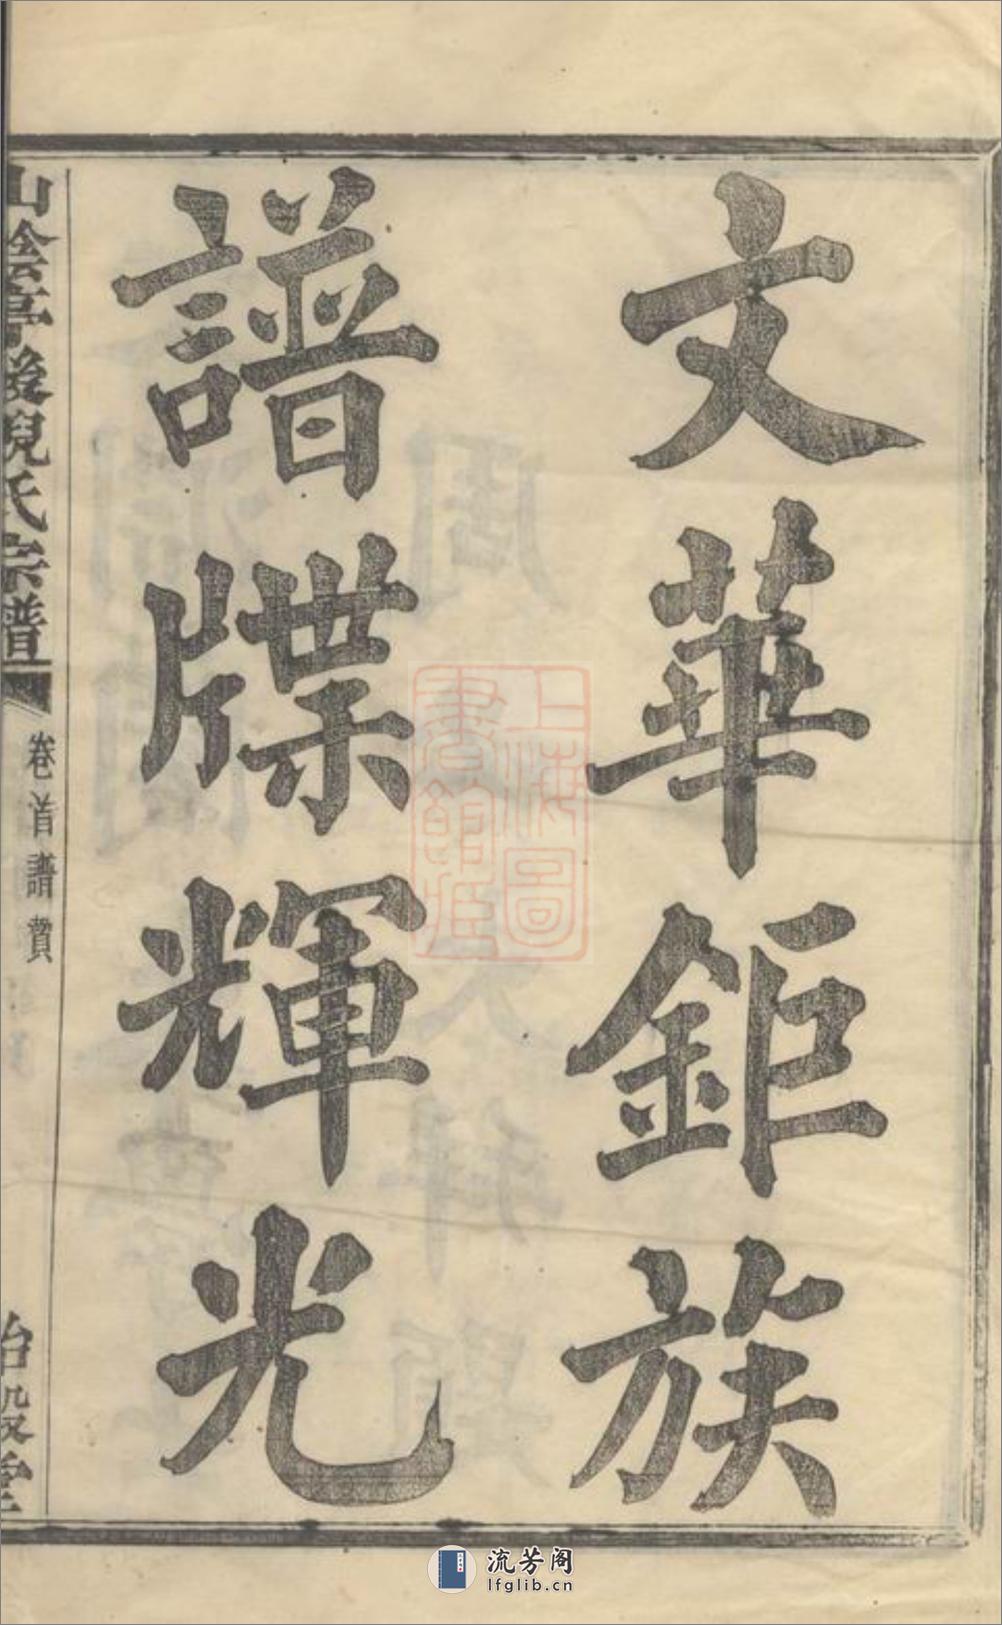 文華鉅族
譜牒輝光
山陰亭後倪氏宗譜
卷首譜贊
詒穀堂
上海圖書館藏
流芳阁
lfglib.cn